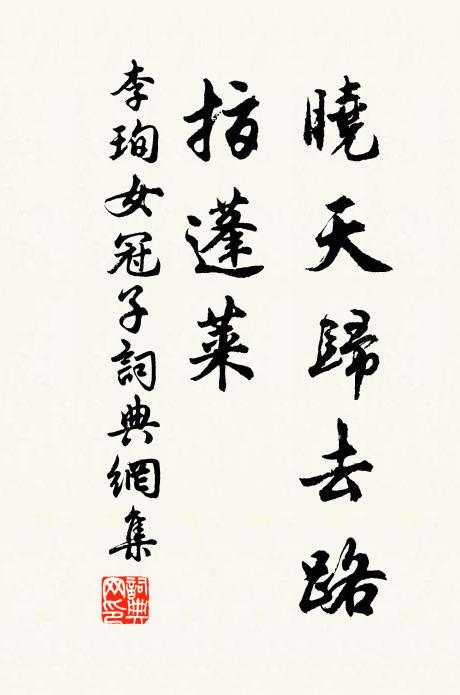 曉天歸去路
指蓬萊
李珣女冠子詞典網集
詞典
网印